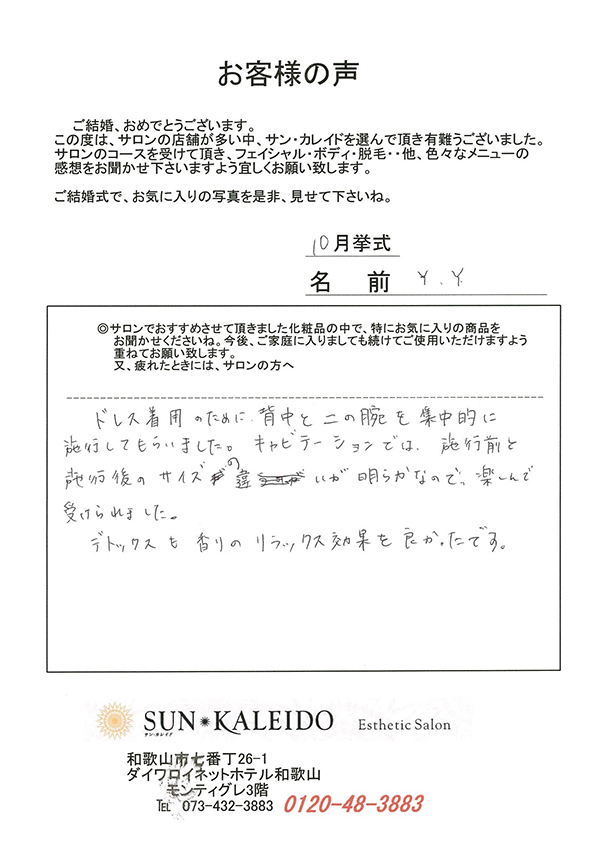 お客様の声
ご結婚、おめでとうございます。
この度は、サロンの店舗が多い中、サン・カレイドを選んで頂き有難うございました。
サロンのコースを受けて頂き、フェイシャル・ボディ・脱毛・・他、色々なメニューの
感想をお聞かせ下さいますよう宜しくお願い致します。
ご結婚式で、お気に入りの写真を是非、見せて下さいね。
10月挙式
名 前 Y.Y.
◎サロンでおすすめさせて頂きました化粧品の中で、特にお気に入りの商品を
お聞かせくださいね。今後、ご家庭に入りましても続けてご使用いただけますよう
重ねてお願い致します。
又、疲れたときには、サロンの方へ
ドレス着用のために、背中と二の腕を集中的に
施行してもらいました。キャビテーションでは、施行前と
施行後のサイズの違いが明らかなので、楽しんで
受けられました。
デトックスも香りのリラックス効果を良かったです。
SUN KALEIDO Esthetic Salon
サン・カレイド
和歌山市七番丁26-1
ダイワロイネットホテル和歌山
モンティグレ3階
℡ 073-432-3883 0120-48-3883